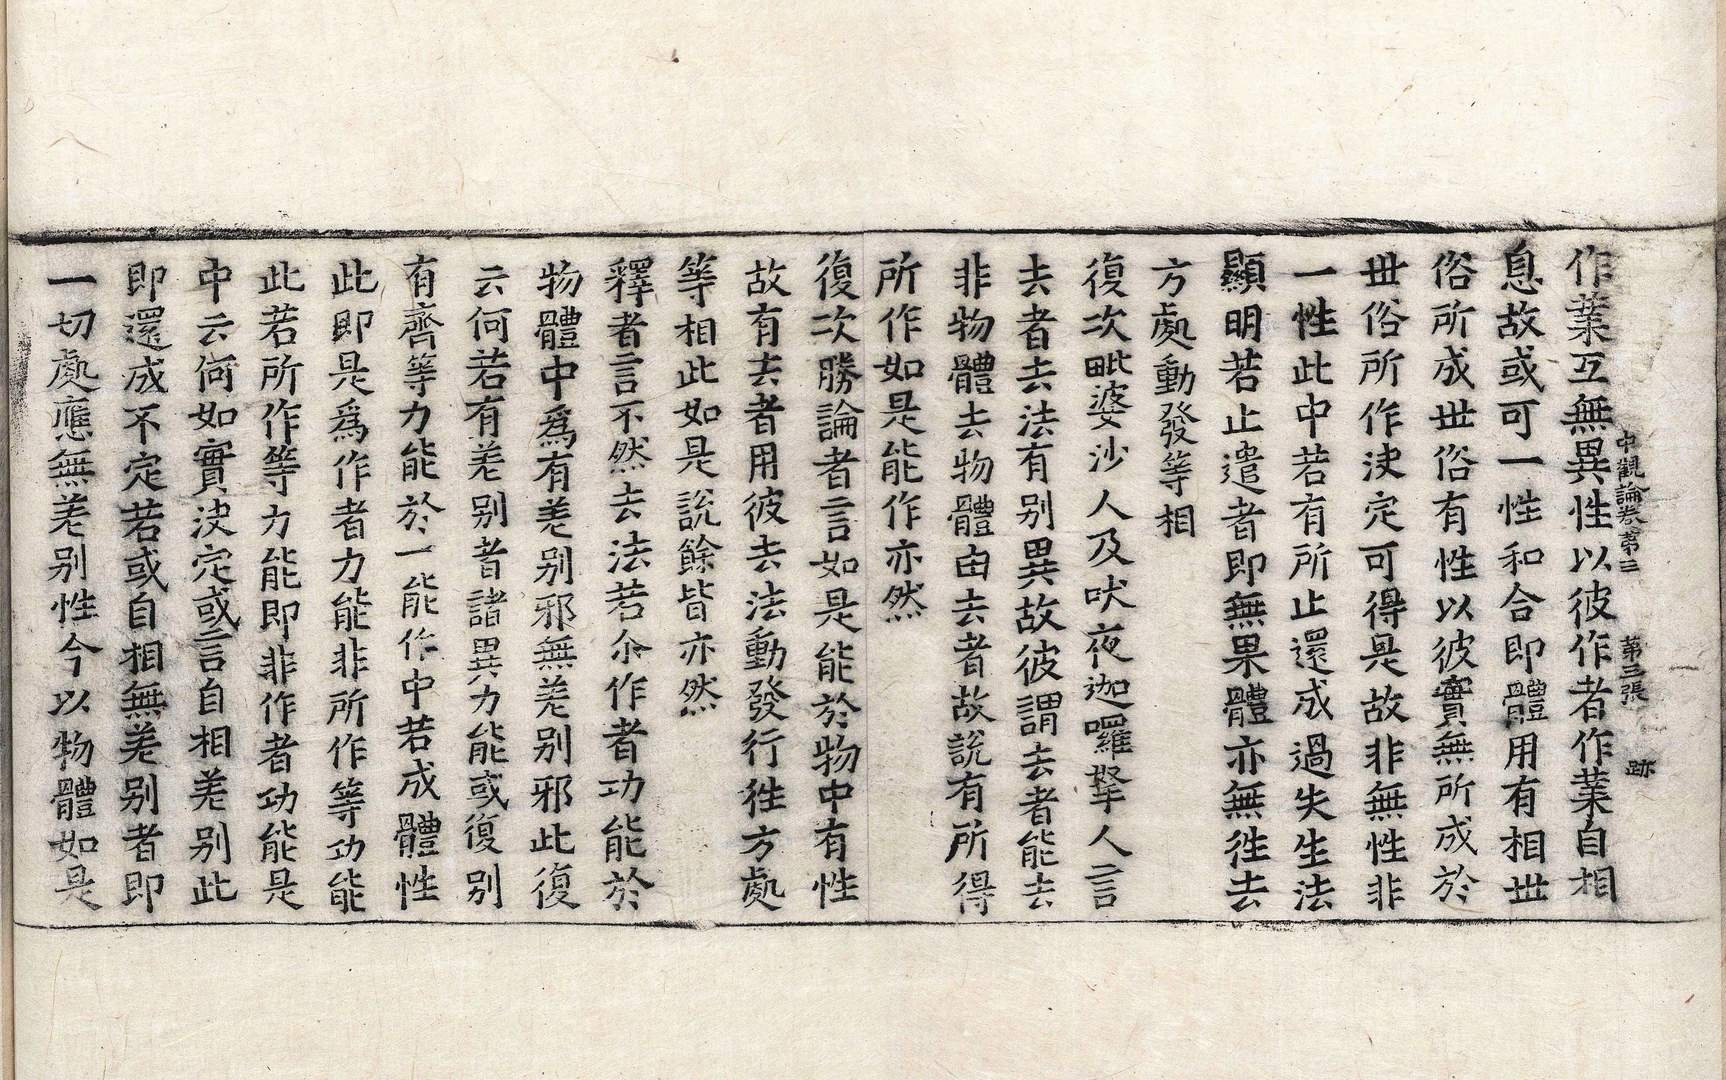 中觀論卷第三 第三張 跡
作業互無異性以彼作者作業自相
息故或可一性和合即體用有相世
俗所成世俗有性以彼實無所成於
世俗所作決定可得是故非無性非
一性此中若有所止還成過失生法
顯明若止遣者即無果體亦無徃去
方處動發等相
復次毗婆沙人及吠夜迦囉拏人言
去者去法有别異故彼謂去者能去
非物體去物體由去者故說有所得
所作如是能作亦然
復次勝論者言如是能於物中有性
故有去者用彼去法動發行徃方處
等相此如是說餘皆亦然
釋者言不然去法若尒作者功能於
物體中爲有差别邪無差别邪此復
云何若有差别者諸異力能或復别
有齊等力能於一能作中若成體性
此即是爲作者力能非所作等功能
此若所作等力能即非作者功能是
中云何如實決定或言自相差别此
即還成不定若或自相無差别者即
一切處應無差别性今以物體如是